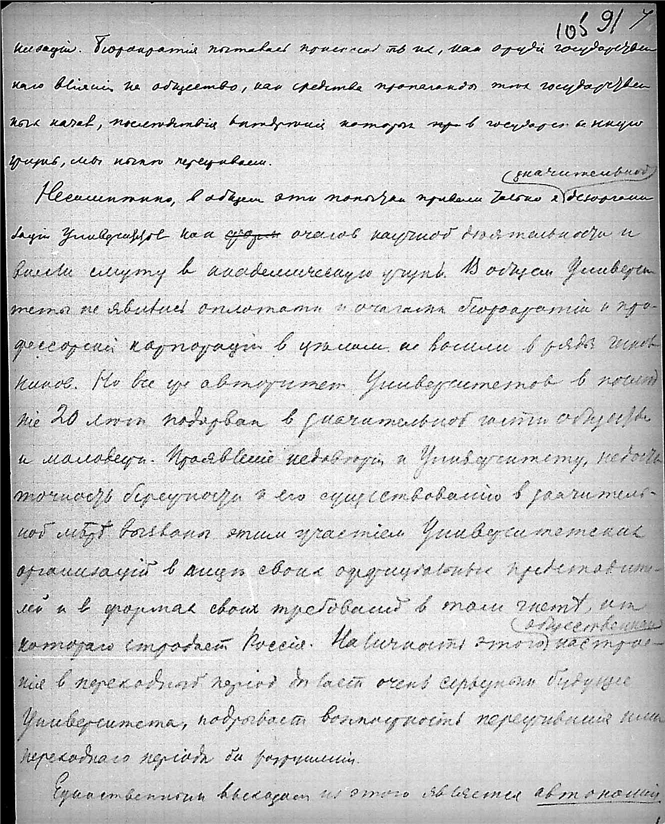 105 91 7
низацій. Бюрократія пыталась приспособить их, как орудія государствен
наго вліянія на общество, как средства пропаганды тѣх государствен
ных начал, послѣдствія внѣдренія которых в государственную
жизнь, мы нынѣ переживаем.
значительной
Несомнѣнно, в общем эти попытки привели только к дезоргани
заціи Университетов как очагов научной дѣятельности и
внесли смуту в академическую жизнь. В общем Универси
теты не явились оплотами и очагами бюрократіи и про-
фессорскія корпораціи в цѣлом не вошли в ряды чинов
ников. Но все же авторитет Университетов в послѣд
ніе 20 лѣт подорван в значительной части общества
и молодежи. Проявленіе недовѣрія к Университету, недоста
точность бережности к его существованію в значитель-
ной мѣрѣ вызваны этим участіем Университетских
организацій в лицѣ своих оффиціальных представите-
лей и в формах своих требованій в том гнетѣ, от
общественнаго
котораго страдает Россія. Наличность этого настрое-
нія в переходный період дѣлает очень серьезным будущее
Университета, подрывает возможность переживанія ими
переходнаго періода без разрушенія.
Единственным выходом из этого является автономія